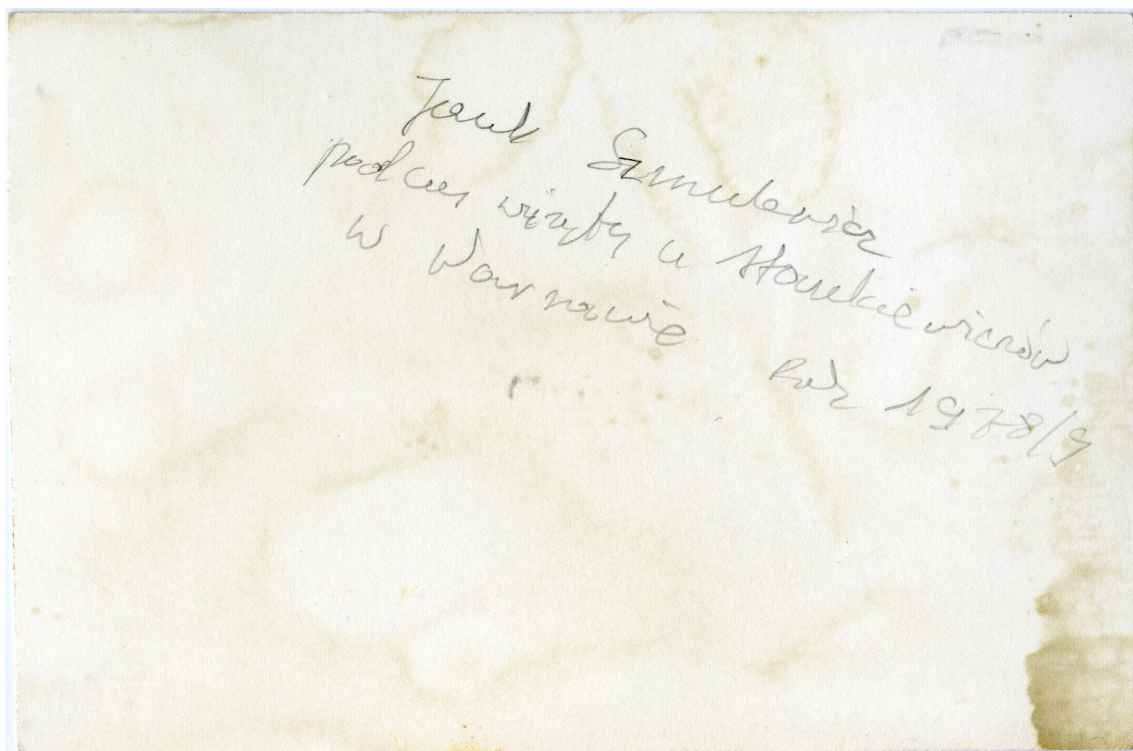 Janek Szmulewicz
podczas wizyty u Stankiewiczów
w Warszawie Rok 1978/9